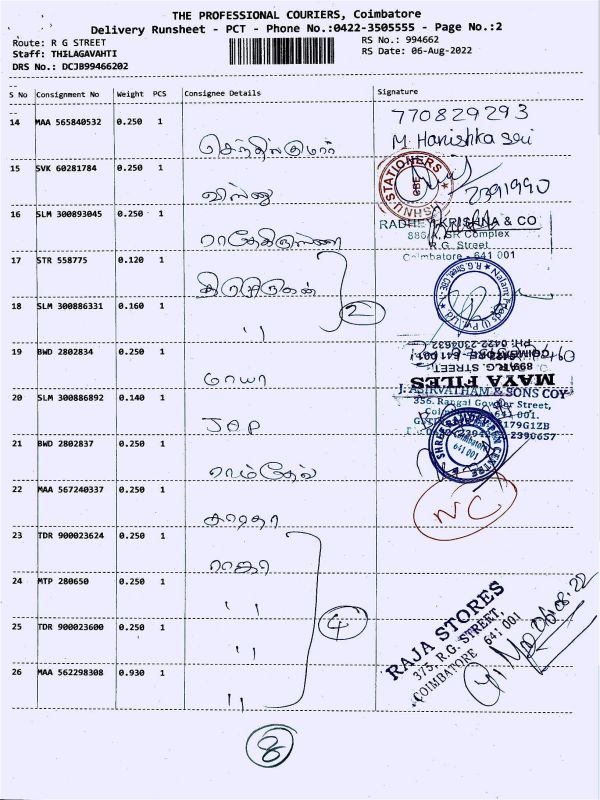 THE PROFESSIONAL COURIERS, Coimbatore
Delivery Runsheet - PCT - Phone No.:0422-3505555 - Page No.:2
Route: R G STREET
RS No.: 994662
Staff: THILAGAVAHTI
RS Date: 06-Aug-2022
DRS No.: DCJB99466202
S No Consignment No Weight PCS Consignee Details Signature
14 MAA 565840532 0.250 1
செந்தில்குமார்
770829293
M. Hanishka
15 SVK 60281784 0.250 1
விஸ்ணு
VISHNU STATIONERS
CBE
2391990
16 SLM 300893045 0.250 1
ராதேகிருஸ்ணா
RADHE KRISHNA & CO
886/A, SR Complex
R.G. Street
Coimbatore - 641 001
17 STR 558775 0.120 1
திருமுருகன்
2
18 SLM 300886331 0.160 1
"
19 BWD 2802834 0.250 1
மாயா
MAYA FILES
899, R.G. STREET
COIMBATORE - 641 001
PH: 0422-2304632
20 SLM 300886892 0.140 1
JAP
J. ASIRVATHAM & SONS COY
356, Rangai Gowder Street,
641 001.
2390657
21 BWD 2802837 0.250 1
ராம்தேவ்
Coimbatore
641 001
22 MAA 567240337 0.250 1
சாரதா
NC
23 TDR 900023624 0.250 1
ராஜா
24 MTP 280650 0.250 1
"
4
25 TDR 900023600 0.250 1
"
26 MAA 562298308 0.930 1
"
RAJA STORES
373, R.G. STREET,
COIMBATORE 641 001
06.08.22
8